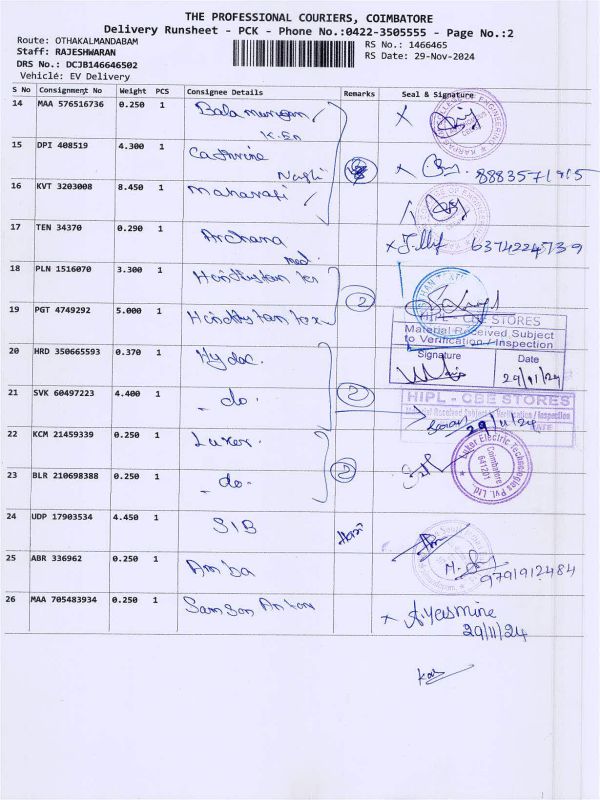 THE PROFESSIONAL COURIERS, COIMBATORE
Delivery Runsheet - PCK - Phone No.:0422-3505555 - Page No.:2
Route: OTHAKALMANDABAM
RS No.: 1466465
Staff: RAJESHWARAN
RS Date: 29-Nov-2024
DRS No.: DCJB146646502
Vehiclé: EV Delivery
S No Consignment No Weight PCS Consignee Details Remarks Seal & Signature
14 MAA 576516736 0.250 1 Balamurugan
K.En
15 DPI 408519 4.300 1 Catherine
8883571915
16 KVT 3203008 8.450 1
17 TEN 34370 0.290 1 Archana
med. 6374224739
18 PLN 1516070 3.300 1 Hindustan tex 2
19 PGT 4749292 5.000 1 Hindustan tex
HIPL - CBE STORES
Material Received Subject
to Verification / Inspection
Signature Date
29/11/24
20 HRD 350665593 0.370 1 Hydac.
21 SVK 60497223 4.400 1 - do - 2
HIPL - CBE STORES
Material Received Subject to Verification / Inspection
29/11/24
22 KCM 21459339 0.250 1 Luker.
23 BLR 210698388 0.250 1 - do - 2
Luker Electric Technologies Pvt. Ltd.
Coimbatore
641201
24 UDP 17903534 4.450 1 SIB
25 ABR 336962 0.250 1 Amba
9791912484
26 MAA 705483934 0.250 1 Samson Antony A.Yesmine
29/11/24